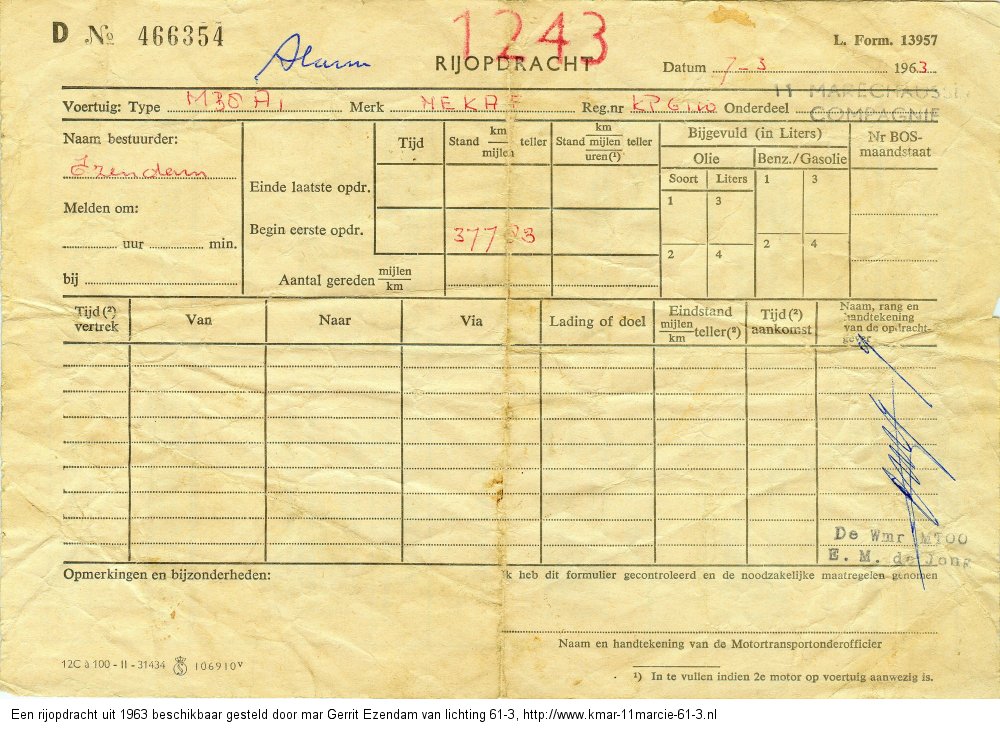 D № 466354
1243
Alarm
RIJOPDRACHT
L. Form. 13957
Datum 7-3 1963
Voertuig: Type M38A1 Merk NEKAF Reg.nr Onderdeel 11 MARECHAUSSEE
COMPAGNIE
Naam bestuurder:
Ezendam
Melden om:
uur min.
bij
Tijd
Stand km/mijlen teller
Stand km/mijlen/uren(¹) teller
Einde laatste opdr.
Begin eerste opdr. 37783
Aantal gereden mijlen/km
Bijgevuld (in Liters)
Olie Benz./Gasolie
Soort Liters 1 3
1 3
2 4
2 4
Nr BOS-
maandstaat
Tijd (²)
vertrek
Van
Naar
Via
Lading of doel
Eindstand
mijlen/km teller(²)
Tijd (²)
aankomst
Naam, rang en
handtekening
van de opdracht-
gever
De Wmr MTOO
E. M. de Jong
Opmerkingen en bijzonderheden:
Ik heb dit formulier gecontroleerd en de noodzakelijke maatregelen genomen
Naam en handtekening van de Motortransportonderofficier
12C à 100 - II - 31434 106910ᵛ
¹) In te vullen indien 2e motor op voertuig aanwezig is.
Een rijopdracht uit 1963 beschikbaar gesteld door mar Gerrit Ezendam van lichting 61-3, http://www.kmar-11marcie-61-3.nl